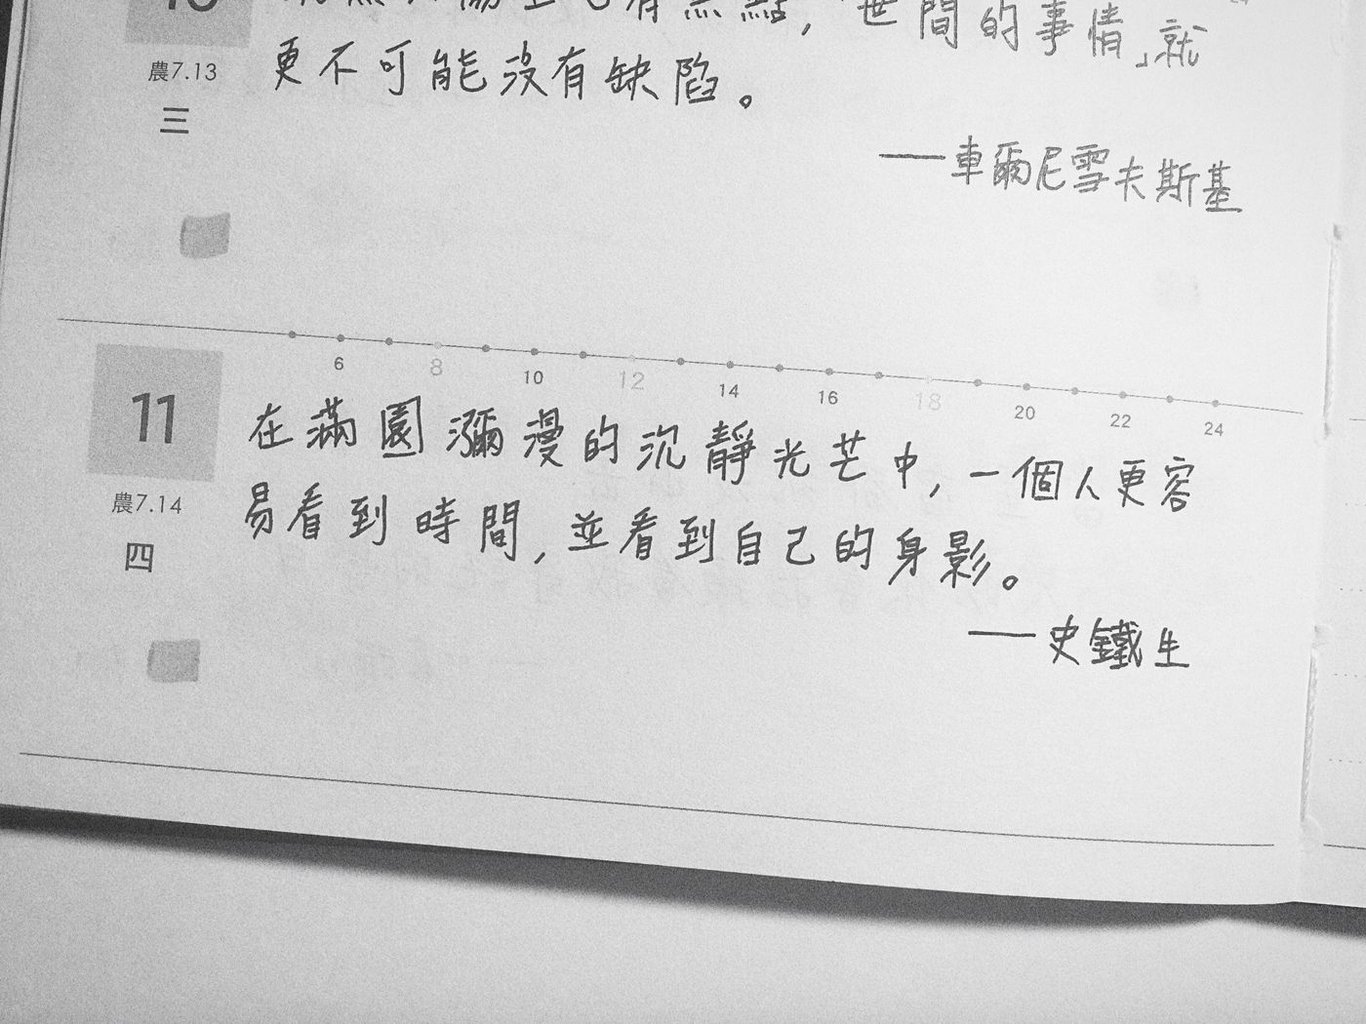 上也有黑點,「世間的事情」就
10
農7.13
更不可能沒有缺陷。
三
——車爾尼雪夫斯基
6 8 10 12 14 16 18 20 22 24
11
在滿園瀰漫的沉靜光芒中,一個人更容
農7.14
易看到時間,並看到自己的身影。
四
——史鐵生